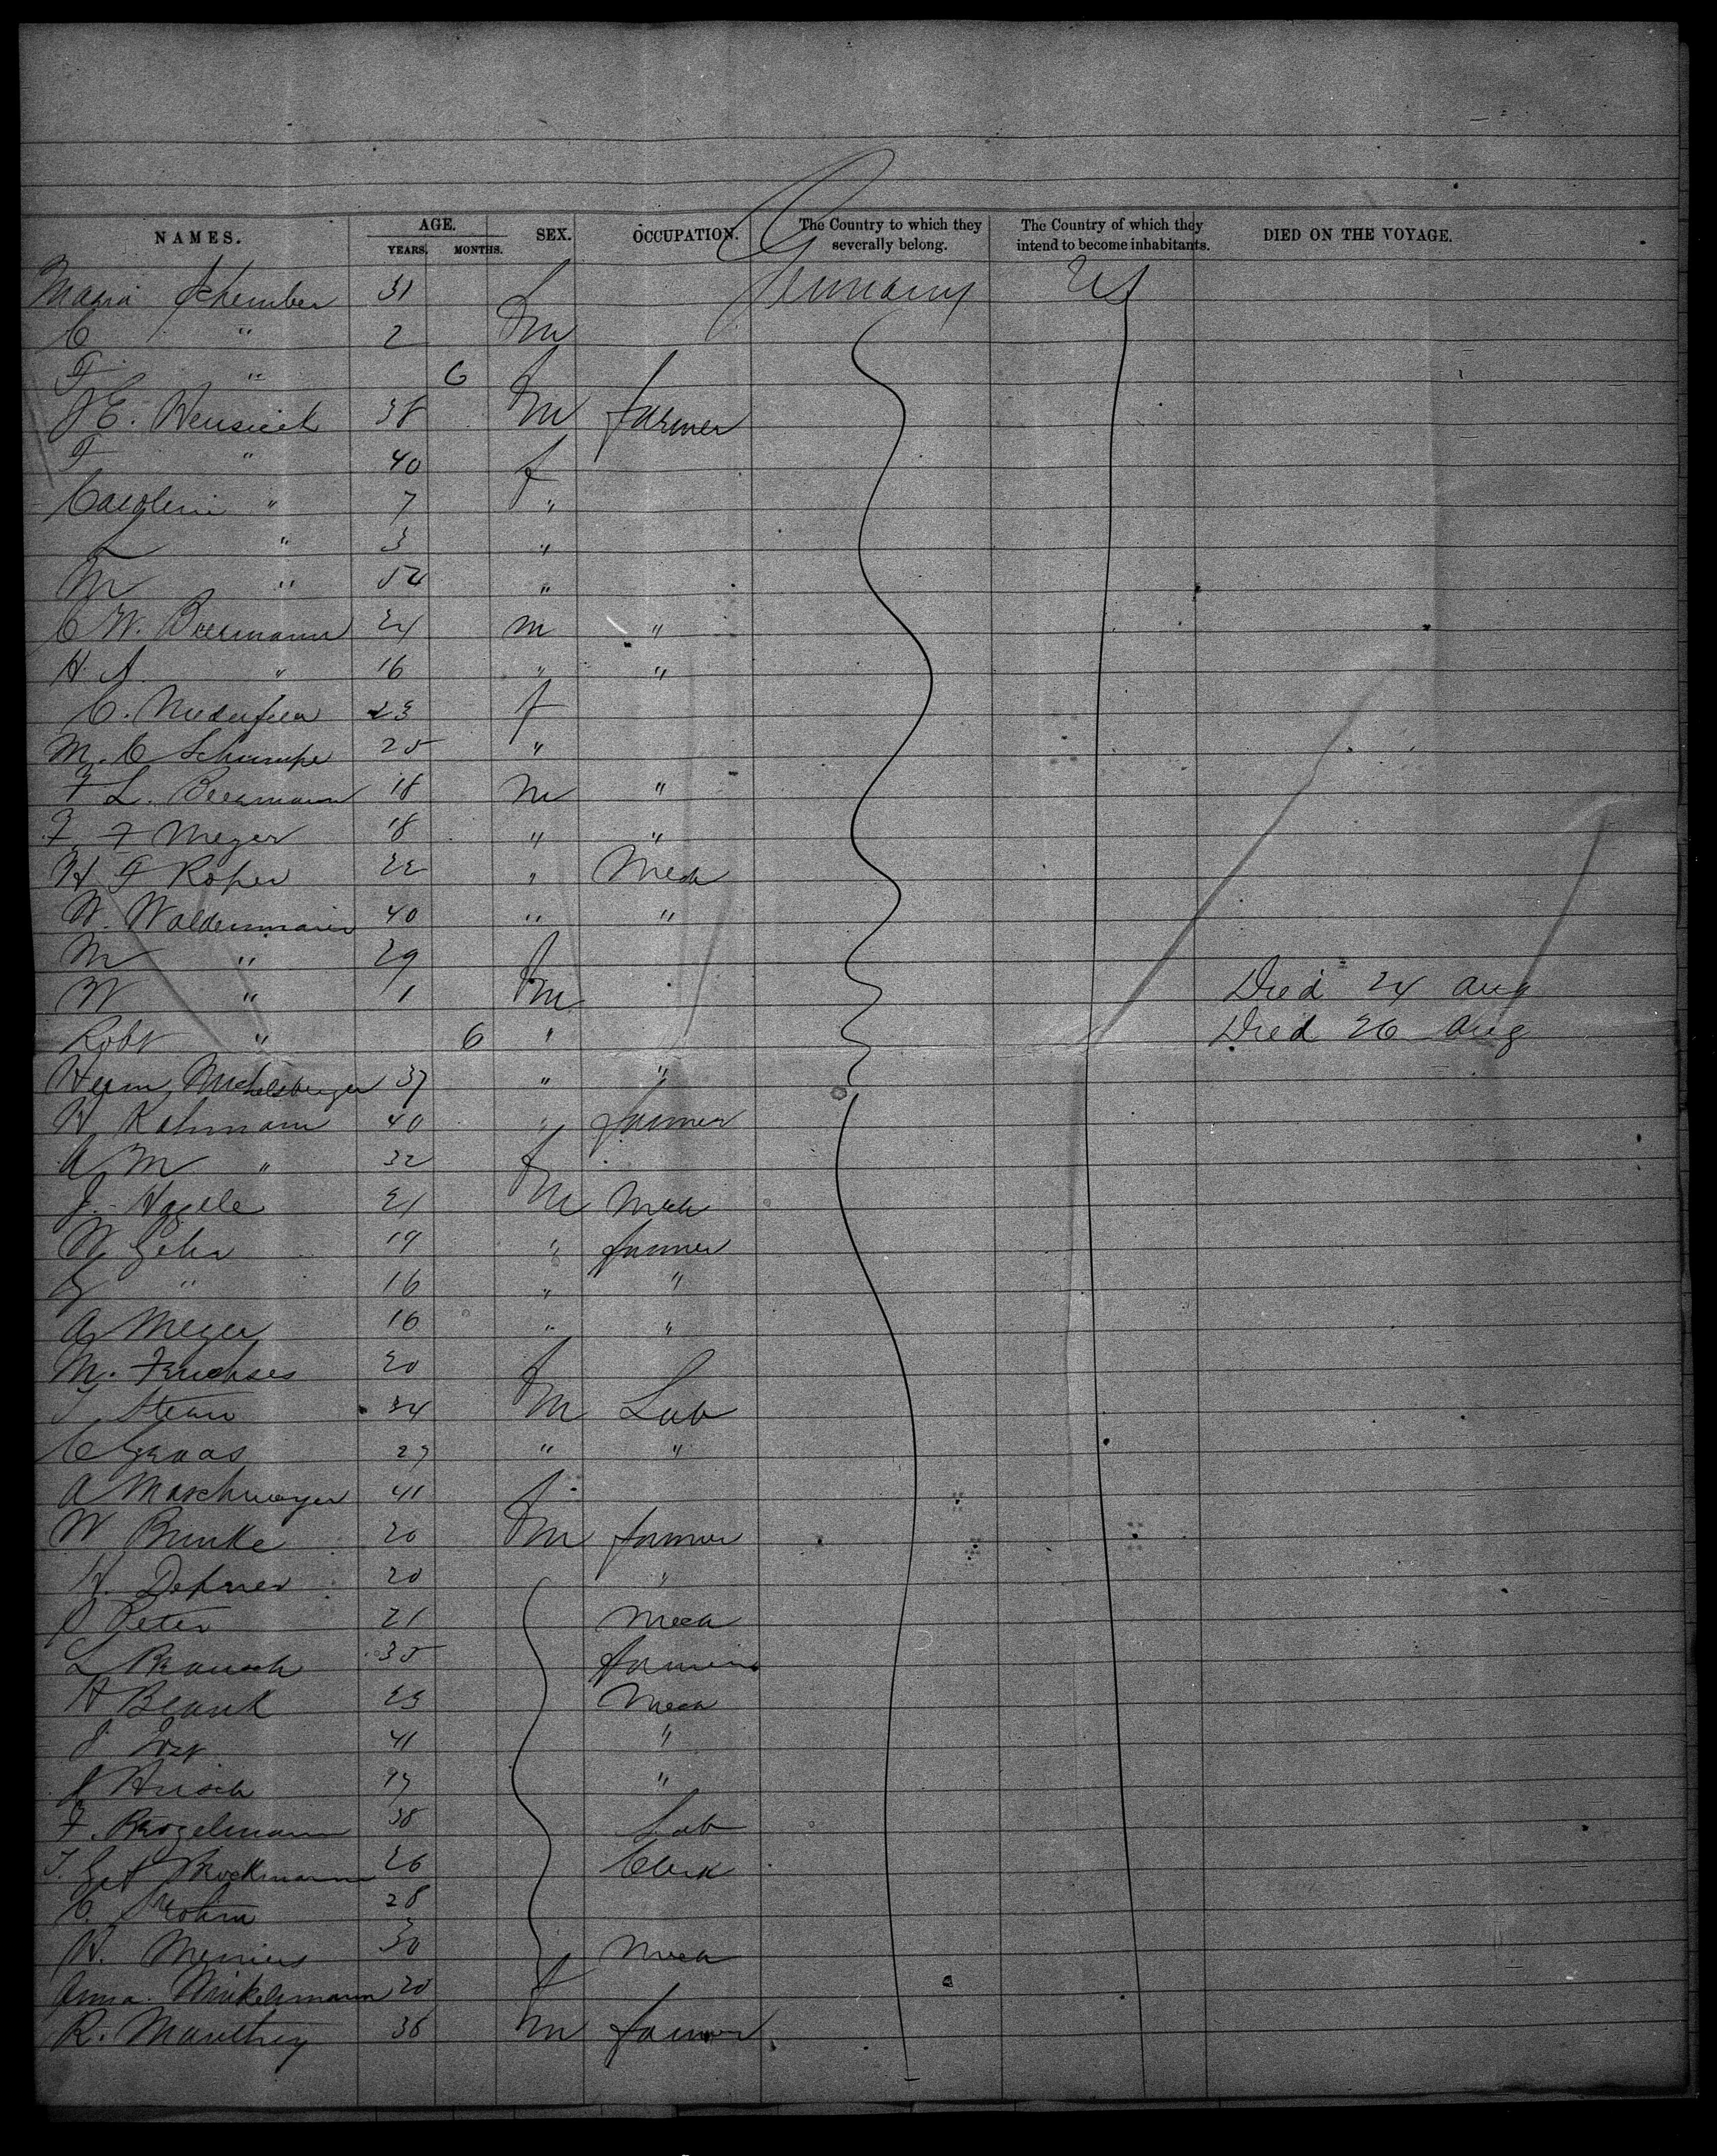 NAMES. AGE. YEARS. MONTHS. SEX. OCCUPATION. The Country to which they severally belong. The Country of which they intend to become inhabitants. DIED ON THE VOYAGE.
Maria Schember 31 f Germany US
C " 2 m
F " 6 f
E. Wensieck 38 m farmer
F " 40 f
Caroline " 7 "
L " 3 "
M " 54 "
C W. Beermann 24 m "
H. A. " 16 " "
C. 23 f
M. C 25 "
F L. Beermann 18 m "
F. F Meyer 18 " "
H F Roper 22 " Mech
W. Waldenmaier 40 " "
M " 29 f
W " 1 m Died 24 Aug
Robt " 6 " Died 26 Aug
Herm Michelsberger 37 " "
H Kahmann 40 " farmer
A M " 32 f
J. Hagele 21 m Mech
W Gehr 19 " farmer
G " 16 " "
A Meyer 16 " "
M. 20 f
34 m Lab
C Graas 27 " "
A Maschmeyer 41 f
W Brinke 20 m farmer
H. 20 "
Peter 21 Mech
L Brausch 35 farmer
A Blank 23 Mech
J 41 "
J Hirsch 19 "
F. Brogelmann 38 Lab
Brockmann 26 Clerk
C. 28
H. Meiners 30 Mech
Anna. Winkelmann 20 f
R. Manthey 36 m farmer